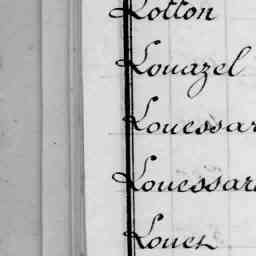 Lotton
Louazel
Louessar
Louessar
Louet